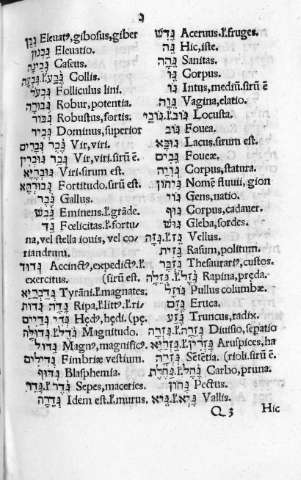 ג
גבן Eleuatꝰ, gibosus, giber
גבנון Eleuatio.
גבינה Caseus.
גבע.ł.גבעה Collis.
גבעל Folliculus lini.
גבורה Robur, potentia.
גבור Robustus, fortis.
גביר Dominus, superior
גבר גברים Vir, viri.
גבר גוברין Vir, viri. sirũ ē.
גובריא Viri. sirum est.
גבורתא Fortitudo. sirũ est.
גבר Gallus.
גבש Eminens.ł. grāde.
גד Fœlicitas.ł. fortu
na, vel stella iouis, vel co
riandrum.
גדוד Accinctꝰ, expedictꝰ.ł.
exercitus. (sirũ est.
Tyrāni.ł. magnates.
Ripa.ł. Litꝰ.ł. Extri.
גדי גדיים Hędꝰ, hędi. (pę.
גדל.ł.גדולה Magnitudo.
גדול Magnꝰ, magnific ꝰ.
גדילים Fimbriæ vestium.
גדוף Blasphemia.
גדר.ł. Sepes, maceries.
גדרה Idem est.ł. murus.
גדיש Aceruus.ł. fruges.
גה Hic, iste.
גהה Sanitas.
גו Corpus.
גו Intus, mediũ. sirũ ē
גוה Vagina, elatio.
גוב.ł.גובי Locusta.
גוב Fouea.
גובא Lacus. sirum est.
גבים Foueæ.
גויה Corpus, statura.
גיחון Nomē fluuii, gion
גוי Gens, natio.
גוף Corpus, cadauer.
גוש Gleba, sordes.
גז.ł.גזה Vellus.
גזית Rasum, politum.
גזבר Thesaurariꝰ, custos.
גזל.ł.גזלה Rapina, pręda.
גוזל Pullus columbæ.
גזם Eruca.
גזע Truncus, radix.
גזר.ł.גזרה Diuisio, sepatio
גזרין.ł. Aruspices, ha
גזרה Sētētia. (rioli. sirũ ē.
גחל.ł.גחלת Carbo, pruna.
גחון Pectus.
גיא.ł.גיא Vallis.
Q 3 Hic